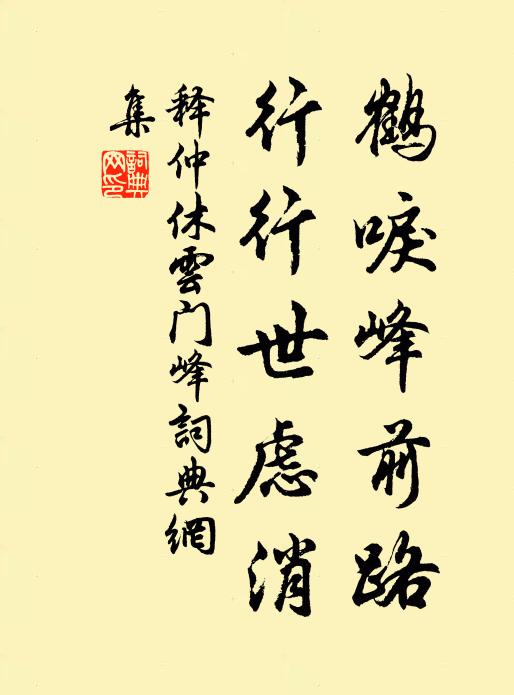 鶴唳峰前路
行行世慮消
释仲休雲门峰詞典網
集
詞典网印